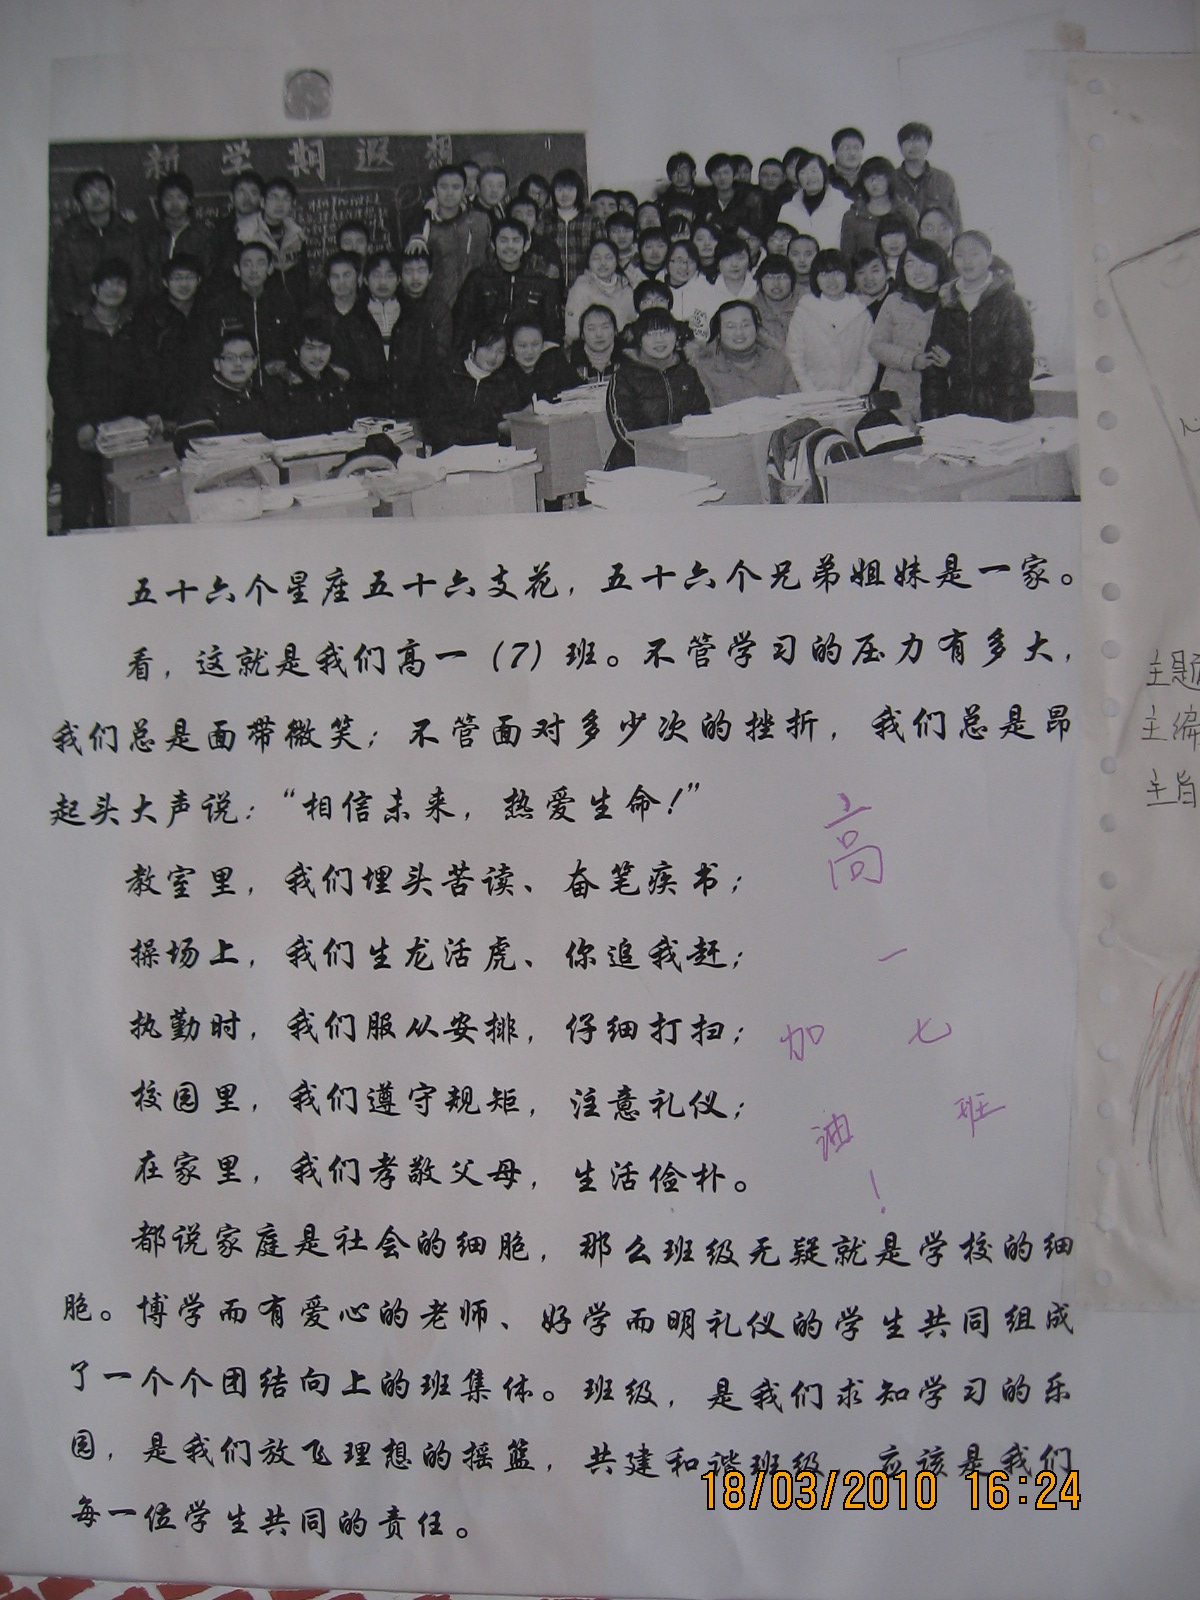 新学期遐想
五十六个星座五十六支花，五十六个兄弟姐妹是一家。
看，这就是我们高一（7）班。不管学习的压力有多大，
我们总是面带微笑；不管面对多少次的挫折，我们总是昂
起头大声说：“相信未来，热爱生命！”
教室里，我们埋头苦读、奋笔疾书；
操场上，我们生龙活虎、你追我赶；
执勤时，我们服从安排，仔细打扫；
校园里，我们遵守规矩，注意礼仪；
在家里，我们孝敬父母，生活俭朴。
高
一
七
班
加
油
！
都说家庭是社会的细胞，那么班级无疑就是学校的细
胞。博学而有爱心的老师、好学而明礼仪的学生共同组成
了一个个团结向上的班集体。班级，是我们求知学习的乐
园，是我们放飞理想的摇篮，共建和谐班级 应该是我们
每一位学生共同的责任。
主题
主编
主旨
18/03/2010 16:24